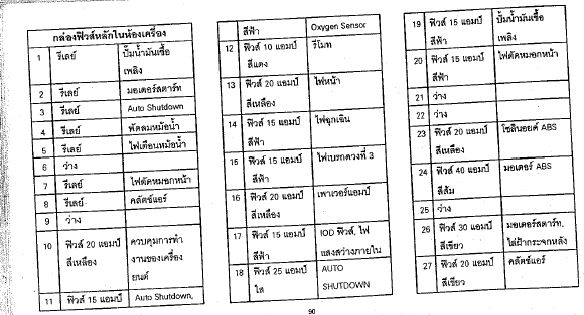 กล่องฟิวส์หลักในห้องเครื่อง
1 รีเลย์ ปั๊มน้ำมันเชื้อ
เพลิง
2 รีเลย์ มอเตอร์สตาร์ท
3 รีเลย์ Auto Shutdown
4 รีเลย์ พัดลมหม้อน้ำ
5 รีเลย์ ไฟเตือนหม้อน้ำ
6 ว่าง
7 รีเลย์ ไฟตัดหมอกหน้า
8 รีเลย์ คลัตช์แอร์
9 ว่าง
10 ฟิวส์ 20 แอมป์ ควบคุมการทำ
สีเหลือง งานของเครื่อง
ยนต์
11 ฟิวส์ 15 แอมป์ Auto Shutdown,
สีฟ้า Oxygen Sensor
12 ฟิวส์ 10 แอมป์ รีโมท
สีแดง
13 ฟิวส์ 20 แอมป์ ไฟหน้า
สีเหลือง
14 ฟิวส์ 15 แอมป์ ไฟฉุกเฉิน
สีฟ้า
15 ฟิวส์ 15 แอมป์ ไฟเบรกดวงที่ 3
สีฟ้า
16 ฟิวส์ 20 แอมป์ เพาเวอร์แอมป์
สีเหลือง
17 ฟิวส์ 15 แอมป์ IOD ฟิวส์, ไฟ
สีฟ้า แสงสว่างภายใน
18 ฟิวส์ 25 แอมป์ AUTO
ใส SHUTDOWN
19 ฟิวส์ 15 แอมป์ ปั๊มน้ำมันเชื้อ
สีฟ้า เพลิง
20 ฟิวส์ 15 แอมป์ ไฟตัดหมอกหน้า
สีฟ้า
21 ว่าง
22 ว่าง
23 ฟิวส์ 20 แอมป์ โซลินอยด์ ABS
สีเหลือง
24 ฟิวส์ 40 แอมป์ มอเตอร์ ABS
สีส้ม
25 ว่าง
26 ฟิวส์ 30 แอมป์ มอเตอร์สตาร์ท,
สีเขียว ไล่ฝ้ากระจกหลัง
27 ฟิวส์ 20 แอมป์ คลัตช์แอร์
สีเขียว
90